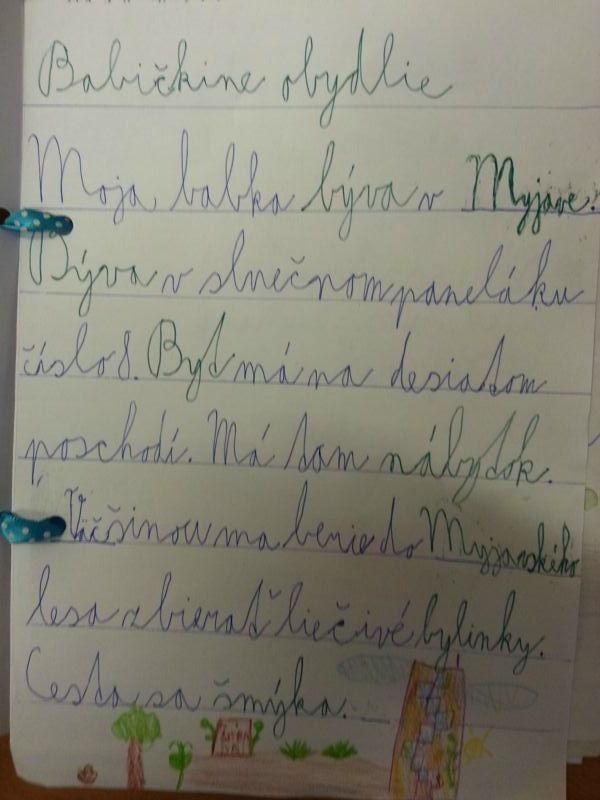 Babičkine obydlie
Moja babka býva v Myjave.
Býva v slnečnom paneláku
číslo 8. Byt má na desiatom
poschodí. Má tam nábytok.
Väčšinou ma berie do Myjavského
lesa zbierať liečivé bylinky.
Cesta sa šmýka.